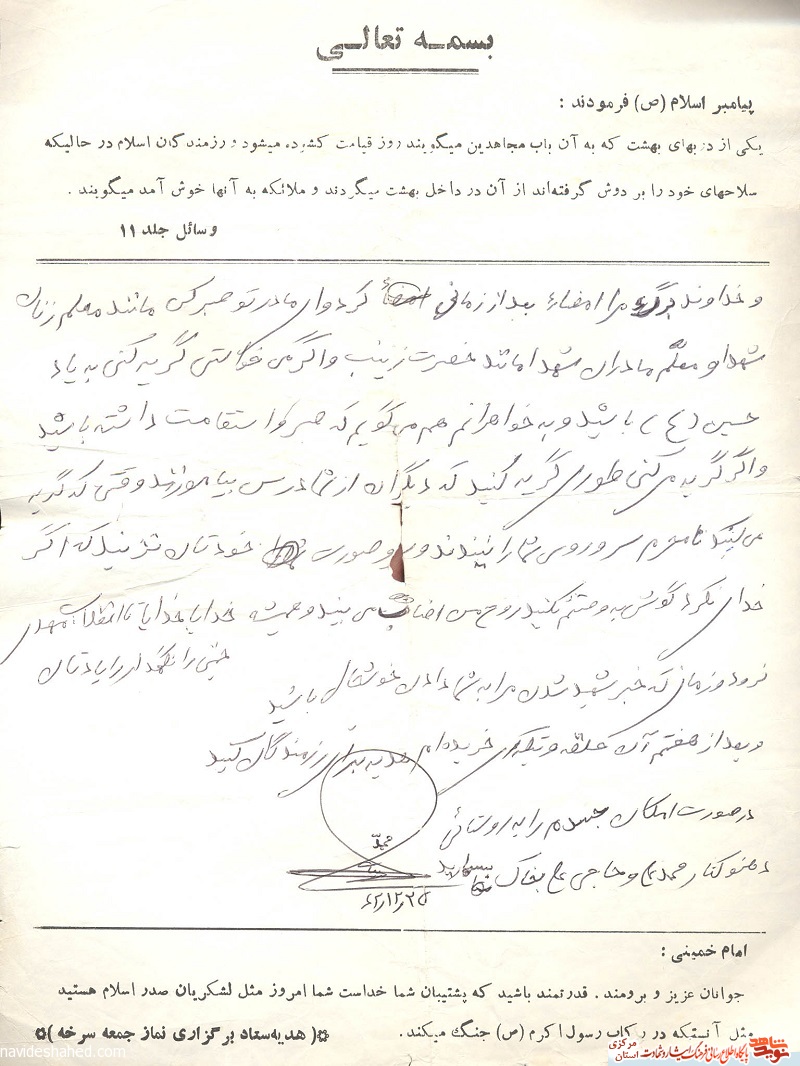 بسمه تعالی
پیامبر اسلام (ص) فرمودند :
یکی از دربهای بهشت که به آن باب مجاهدین میگویند روز قیامت کشوده میشود و رزمندگان اسلام در حالیکه
سلاحهای خود را بر دوش گرفته‌اند از آن در داخل بهشت میگردند و ملائکه به آنها خوش آمد میگویند .
وسائل جلد ۱۱
و خداوند مرا امضاء بعد از زمانی کرد وای مادر تو صبر کن مانند معلم زنان
شهدا و معلم مادران شهدا مانند حضرت زینب و اگر می خواستی گریه کنی به یاد
حسین (ع) باشید و به خواهرانم هم می گویم که صبر و استقامت داشته باشید
و اگر گریه می کنی طوری گریه کنید که دیگران از شما درس بیاموزند وقتی که گریه
می کنید نامحرم سر و روی شما را نبیند و صورت خودتان نزنید که اگر
خدای نکرده گوش به وصیتم نکنید روح من می بیند و همیشه خدایا خدایا تا انقلاب مهدی
خمینی را نگهدار را یادتان
نرود و زمانی که خبر شهید شدن مرا به شما دادن خوشحال باشید
و بعد از هفتم آن خریده‌ام هدیه برای رزمندگان کنید
در صورت امکان جسدم را به روستائی
کنار محمد و حاجی بخاک بسپارید
محمد
۶۲/۱۲/۲
امام خمینی :
جوانان عزیز و برومند . قدرتمند باشید که پشتیبان شما خداست شما امروز مثل لشکریان صدر اسلام هستید
مثل آنستیکه در رکاب رسول اکرم (ص) جنگ میکند .
(هدیه ستاد برگزاری نماز جمعه سرخه)
navideshahed.com
نوید شاهد
پایگاه اطلاع رسانی فرهنگ ایثار و شهادت استان مرکزی